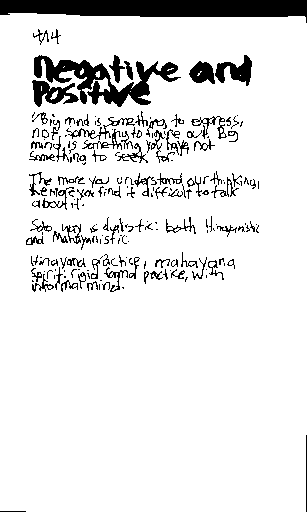 4/14
negative and
positive
"Big mind is something to express,
not something to figure out. Big
mind is something you have, not
something to seek for."
The more you understand our thinking,
the more you find it difficult to talk
about it.
Soto way is dualistic: both Hinayanistic
and Mahayanistic.
Hinayana practice, mahayana
spirit: rigid formal practice, with
informal mind.